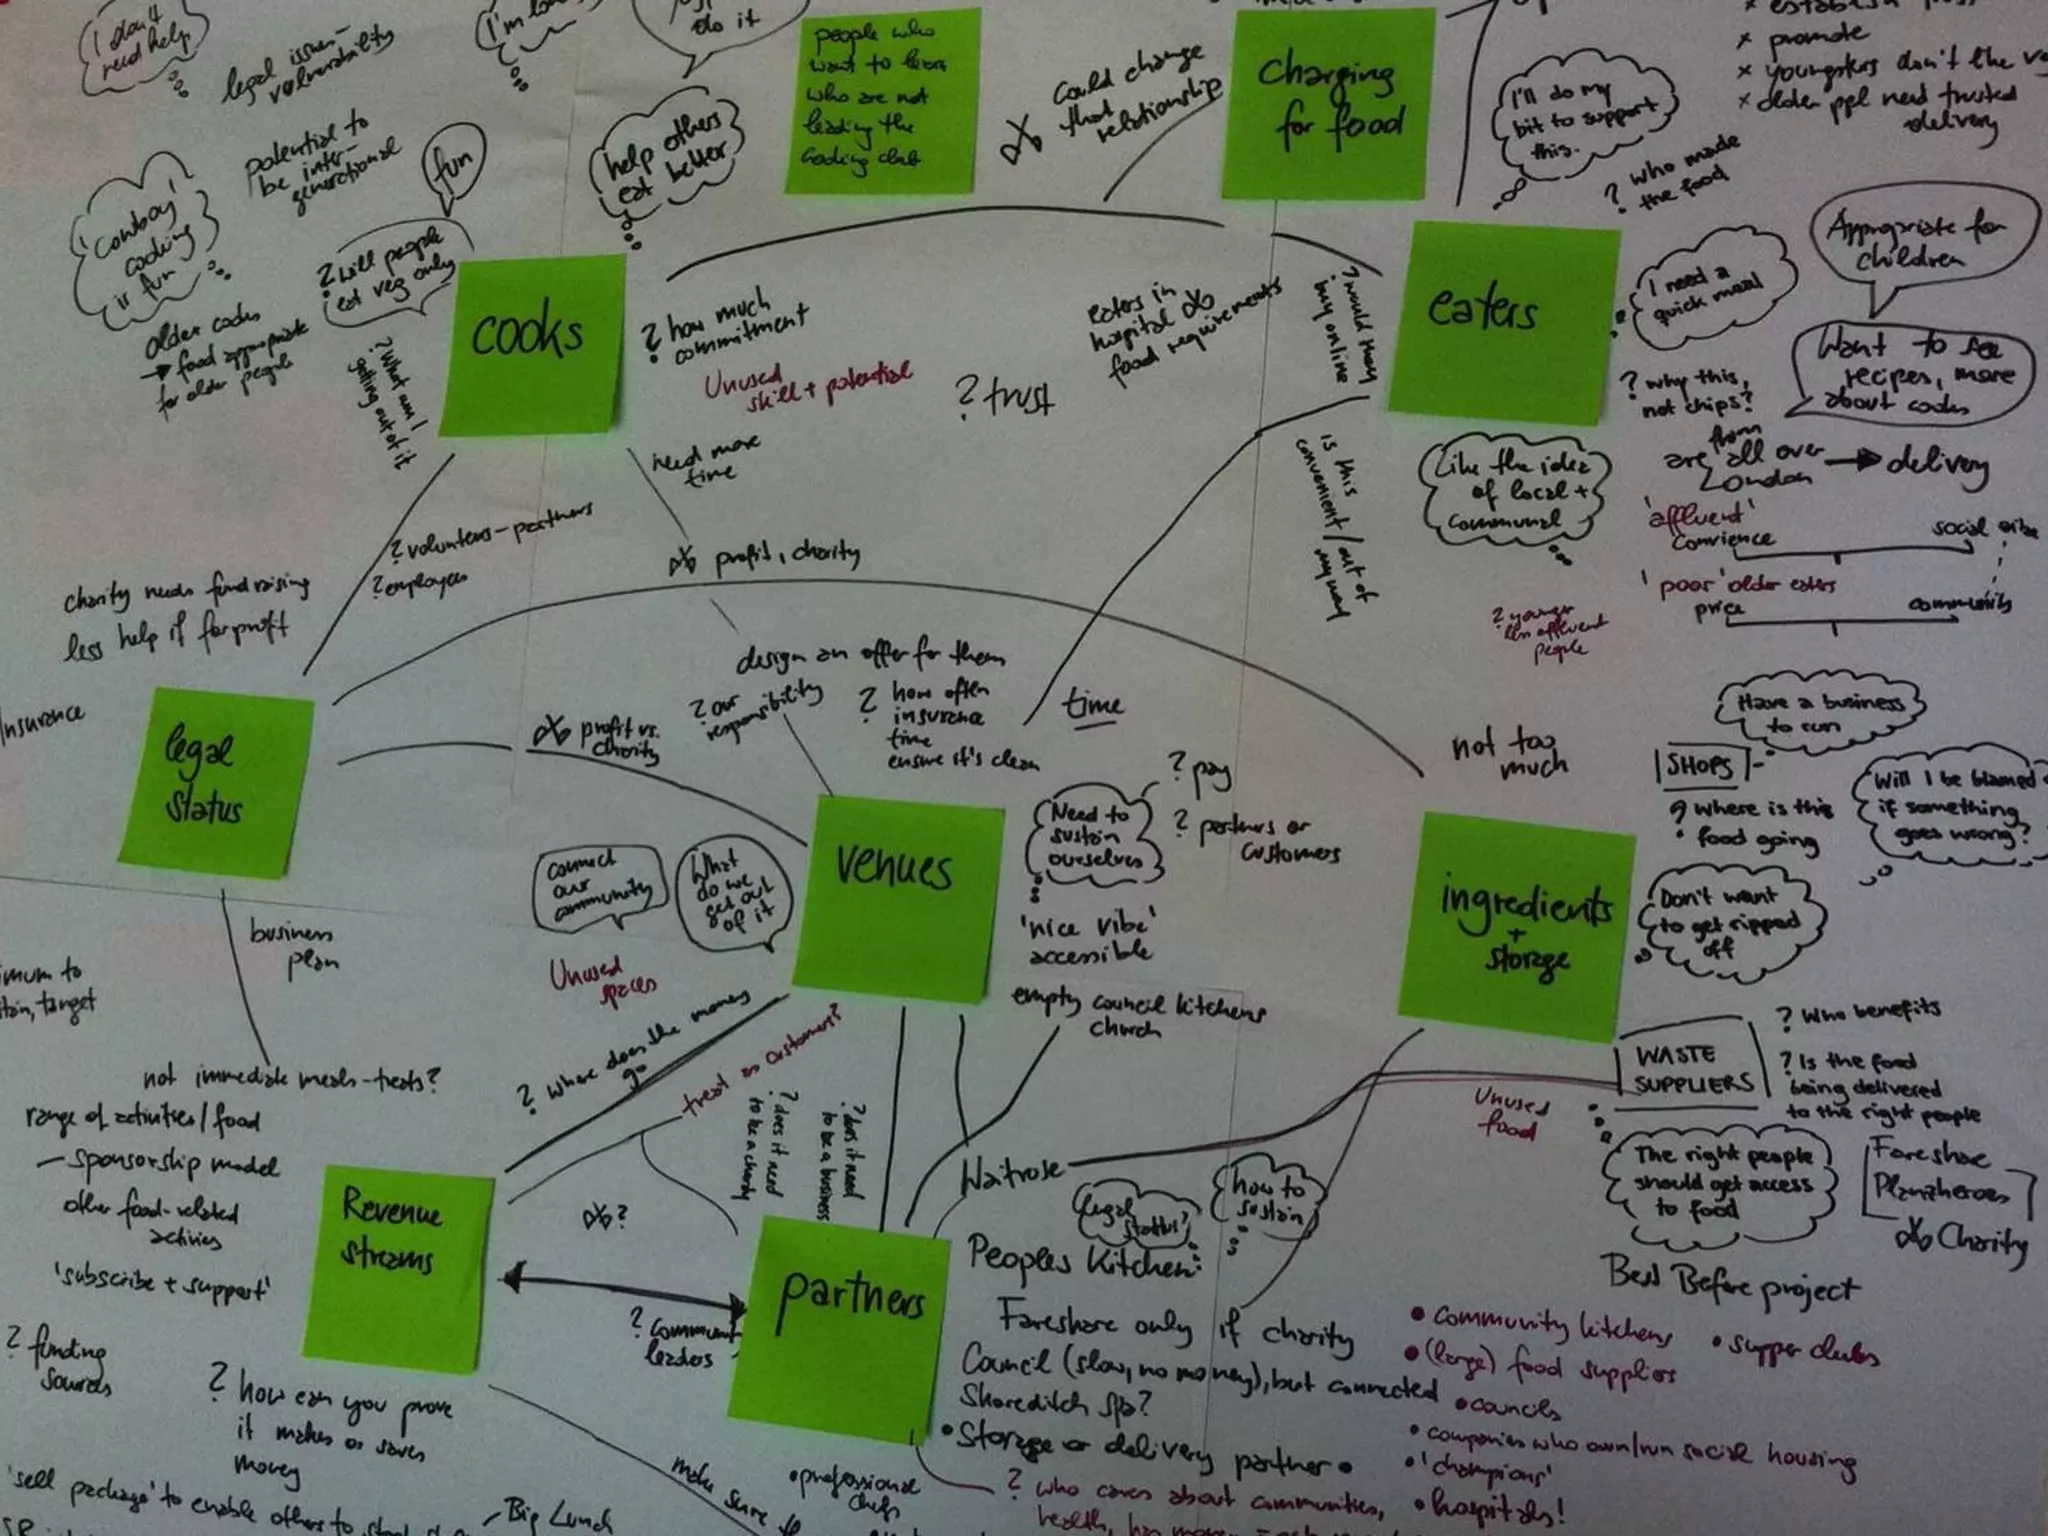 I don't
need help
legal issues -
vulnerability
do it
people who
want to learn
who are not
leading the
cooking club
could change
that
relationship
Charging
for food
I'll do my
bit to support
this.
? who made
the food
x promote
x youngsters don't like
x older ppl need trusted
delivery
potential to
be inter-
generational
fun
help others
eat better
'cowboy'
cooking
is fun
? will people
eat veg only
older cooks
→ food appropriate
for older people
? What am I
getting out of it
cooks
? how much
commitment
Unused
skill + potential
? trust
eaters in
hospital
food requirements
? would they
buy online
is this
convenient / out of
my way
eaters
I need a
quick meal
Appropriate for
children
Want to see
recipes, more
about cooks
? why this,
not chips?
are from all over
London → delivery
Like the idea
of local +
communal
'affluent'
social
'poor' older eaters
price
community
? younger
less affluent
people
need more
time
? volunteers - partners
? employees
profit, charity
charity needs fundraising
less help if for profit
insurance
legal
status
profit vs.
charity
design an offer for them
? our
responsibility
? how often
insurance
time
ensure it's clean
time
? pay
? partners or
customers
Need to
sustain
ourselves
venues
connect
our
community
What
do we
get out
of it
Unused
spaces
'nice vibe'
accessible
empty council kitchens
church
not too
much
Have a business
to run
SHOPS
? where is this
food going
Will I be blamed
if something
goes wrong?
ingredients
+
storage
Don't want
to get ripped
off
business
plan
target
? Where does the money
go
treat as customers?
? does it need
to be a charity
? does it need
to be a business
WASTE
SUPPLIERS
? Who benefits
? Is the food
being delivered
to the right people
Unused
food
The right people
should get access
to food
Fareshare
Planzheroes
Charity
not immediate meals - treats?
range of activities / food
- sponsorship model
other food-related
activies
'subscribe + support'
? funding
sources
Revenue
streams
? how can you prove
it makes or saves
money
?
? community
leaders
partners
Waitrose
legal
status?
how to
sustain
Peoples Kitchen:
Fareshare only if charity
Council (slow, no money), but connected
Shoreditch spa?
• Storage or delivery partner •
Best Before project
• community kitchens
• supper clubs
• (large) food suppliers
• councils
• companies who own/run social housing
• 'champions'
• hospitals!
? who cares about communities,
health, has money
• professional
chefs
make sure
'sell package' to enable others to start
- Big Lunch